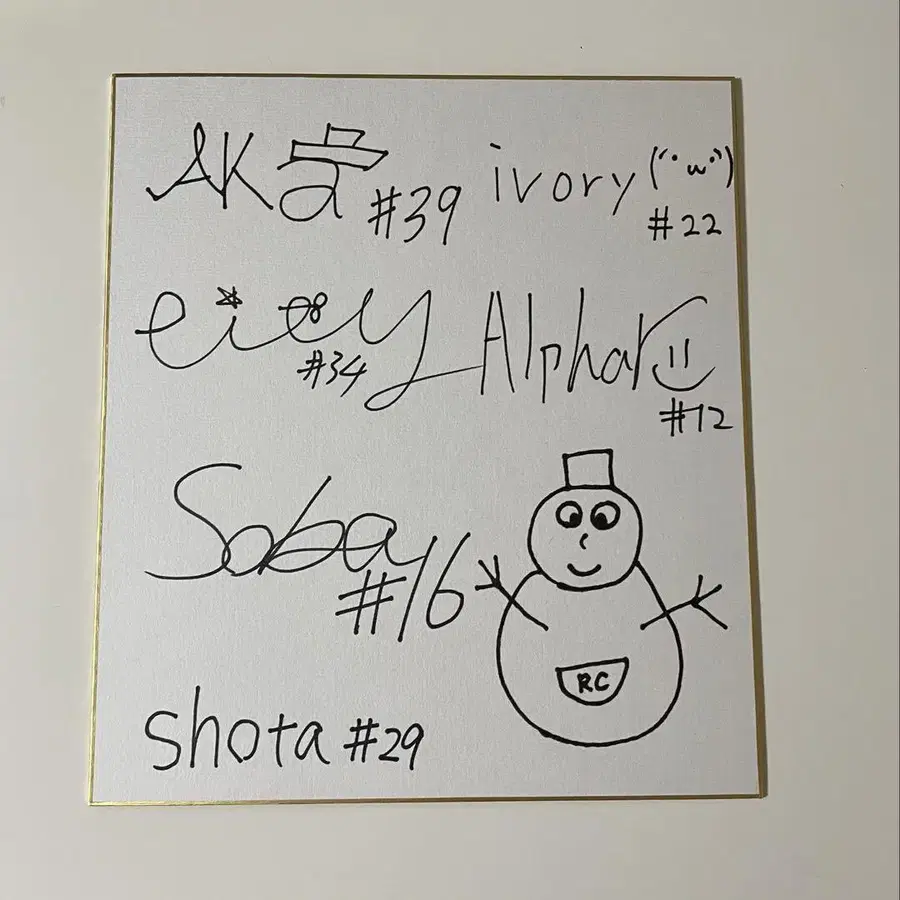 AK #39
ivory (´・ω・`)
#22
#34
Alphar
#12
Soba
#16
RC
shota #29